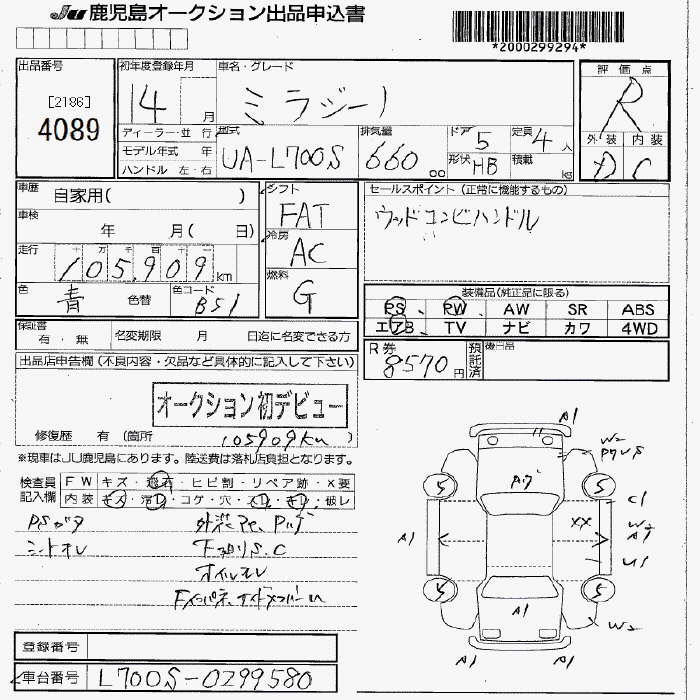 JU 鹿児島オークション出品申込書
*2000299294*
出品番号
[2186]
4089
初年度登録年月
14 月
車名・グレード
ミラジーノ
評価点
R
外装 内装
D C
ディーラー・並行
モデル年式 年
ハンドル 左・右
型式
UA-L700S
排気量
660 cc
ドア 5
形状 HB
定員 4 人
積載 kg
車歴 自家用( )
車検 年 月( 日)
走行 十 万 千 百 十 一
105,909 km
色 青 色替
色コード B51
シフト
FAT
冷房
AC
燃料
G
セールスポイント(正常に機能するもの)
ウッドコンビハンドル
装備品(純正品に限る)
PS PW AW SR ABS
エアB TV ナビ カワ 4WD
保証書
有・無
名変期限 月 日迄に名変できる方
R券
8570円
預託済
後日品
出品店申告欄(不良内容・欠品など具体的に記入して下さい)
オークション初デビュー
修復歴 有(箇所 105909km )
※現車はJU鹿児島にあります。陸送費は落札店負担となります。
検査員記入欄
FW キズ・飛石・ヒビ割・リペア跡・×要
内装 キズ・汚れ・コゲ・穴・スレ・キレ・破レ
シートオレ
下廻りS.C
オイルモレ
A1
W2
5
5
C1
A1
××
W2
A1
U1
5
5
A1
W2
A1
A1
登録番号
車台番号 L700S-0299580